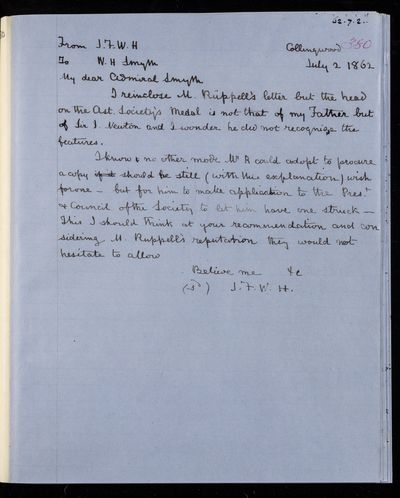 52.7.2.
From J.F.W.H
Collingwood 380
To W. H Smyth
July 2 1862
My dear Admiral Smyth
I reinclose M. Rüppell's letter but the head
on the Ast. Society's Medal is not that of my Father but
of Sir I. Newton and I wonder he did not recognize the
features.
I know no other mode Mr R could adopt to procure
a copy should he still (with this explanation) wish
for one — but for him to make application to the Prest
& Council of the Society to let him have one struck —
This I should think at your recommendation and con
sidering M. Ruppell's reputation they would not
hesitate to allow
Believe me &c
(sd) J.F.W. H.